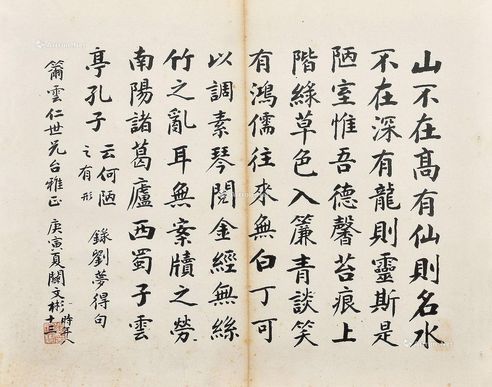 山不在高有仙則名水
不在深有龍則靈斯是
陋室惟吾德馨苔痕上
階綠草色入簾青談笑
有鴻儒往來無白丁可
以調素琴閱金經無絲
竹之亂耳無案牘之勞
南陽諸葛廬西蜀子雲
亭孔子云何陋
之有形
錄劉夢得句
雲仁世兄台雅正
庚寅夏關文彬
時年八
十三